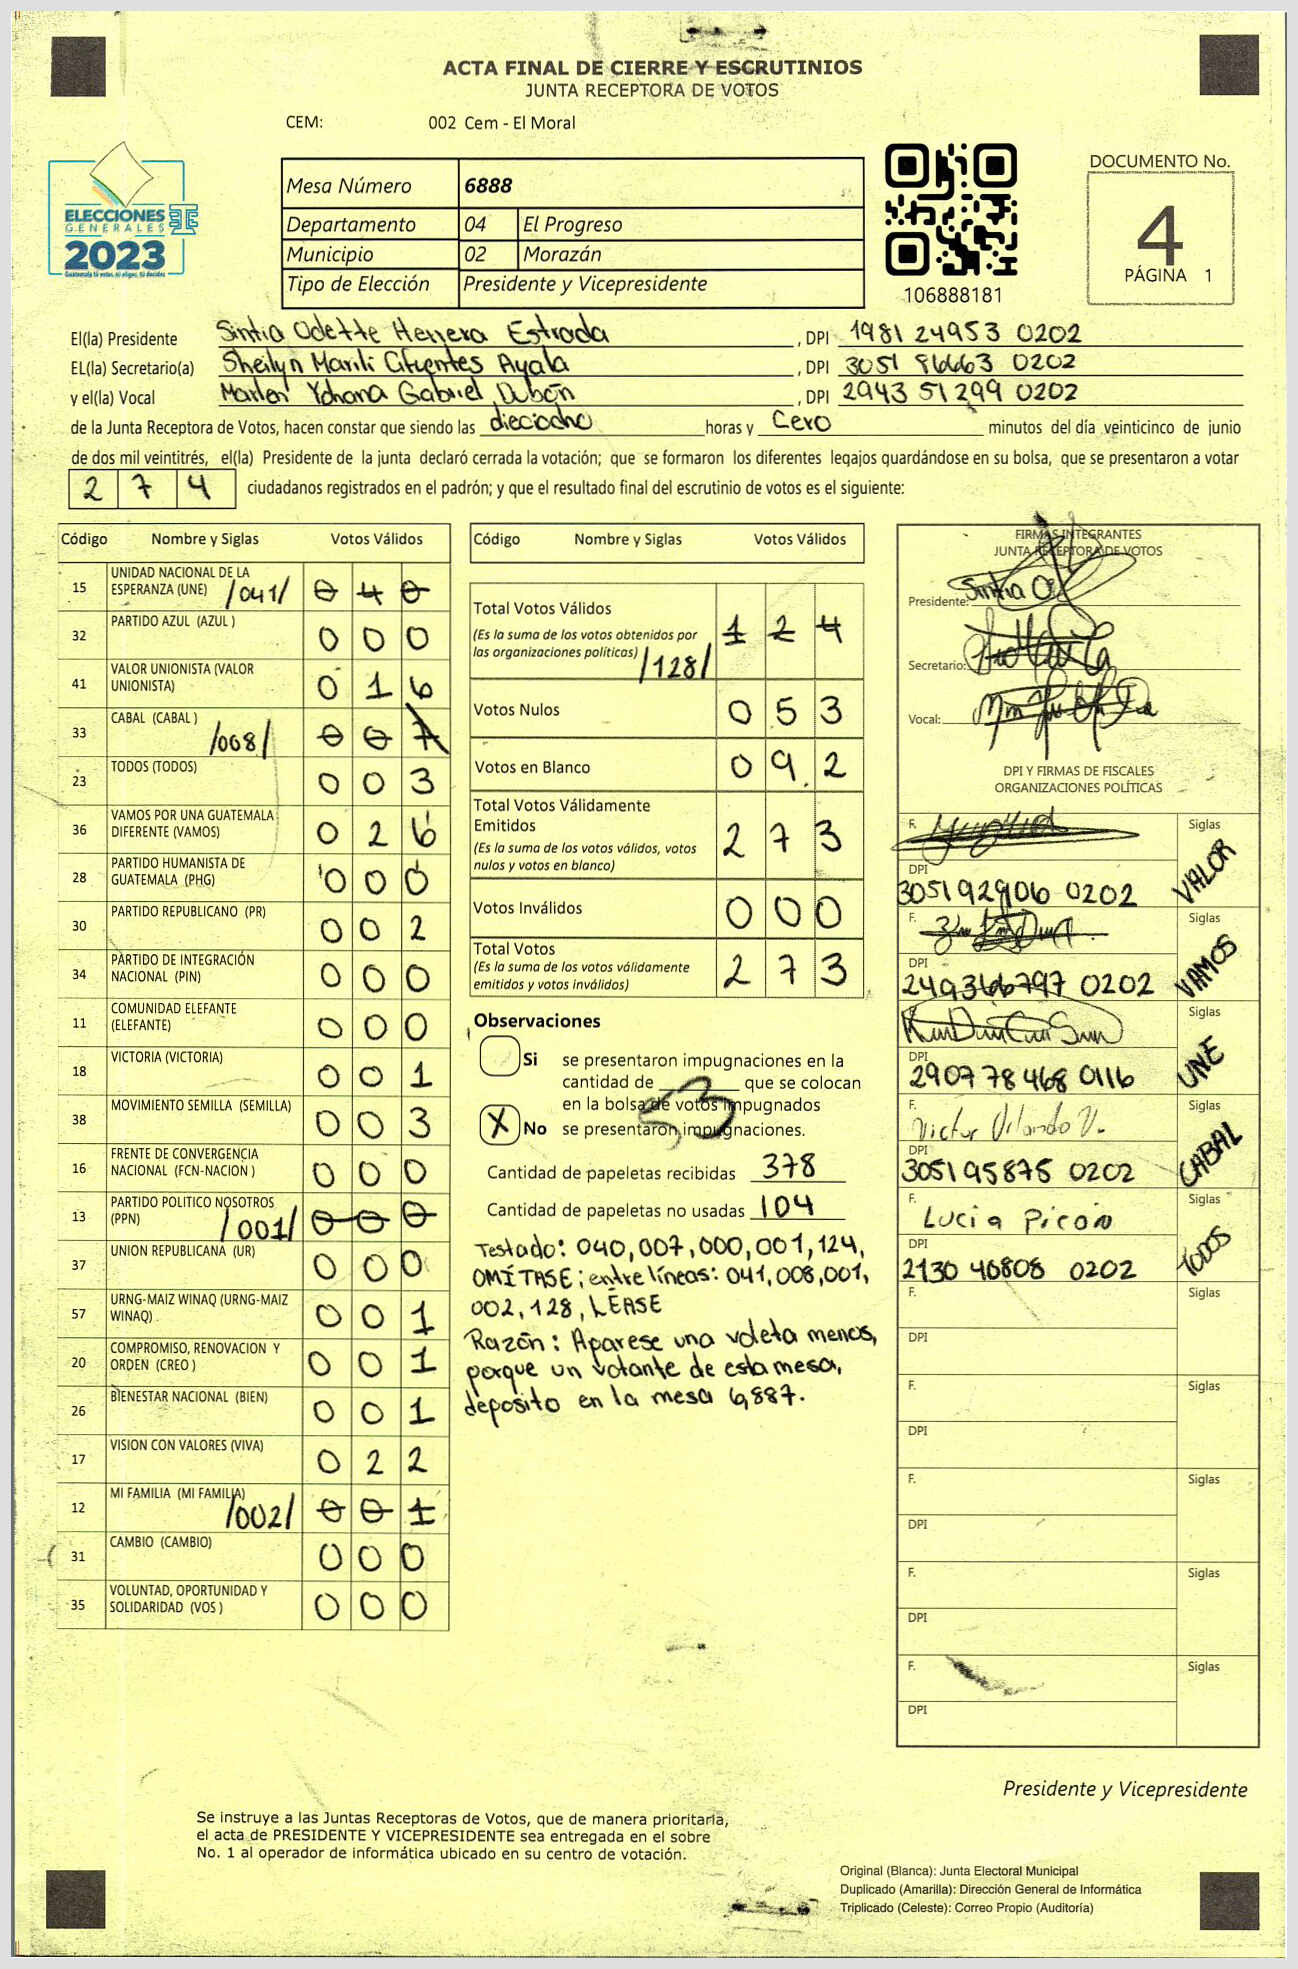 ACTA FINAL DE CIERRE Y ESCRUTINIOS
JUNTA RECEPTORA DE VOTOS
CEM: 002 Cem - El Moral
ELECCIONES
GENERALES
2023
Guatemala tú votas, tú eliges, tú decides
Mesa Número 6888
Departamento 04 El Progreso
Municipio 02 Morazán
Tipo de Elección Presidente y Vicepresidente
106888181
DOCUMENTO No.
4
PÁGINA 1
El(la) Presidente Sintia Odette Herrera Estrada, DPI 1981 24953 0202
EL(la) Secretario(a) Sheilyn Marili Cifuentes Ayala, DPI 3051 86663 0202
y el(la) Vocal Marlen Yohana Gabriel Dubón, DPI 2943 51299 0202
de la Junta Receptora de Votos, hacen constar que siendo las dieciocho horas y Cero minutos del día veinticinco de junio
de dos mil veintitrés, el(la) Presidente de la junta declaró cerrada la votación; que se formaron los diferentes legajos quardándose en su bolsa, que se presentaron a votar
2 7 4 ciudadanos registrados en el padrón; y que el resultado final del escrutinio de votos es el siguiente:
Código Nombre y Siglas Votos Válidos
15 UNIDAD NACIONAL DE LA ESPERANZA (UNE) /041/ 0 4 0
32 PARTIDO AZUL (AZUL ) 0 0 0
41 VALOR UNIONISTA (VALOR UNIONISTA) 0 1 6
33 CABAL (CABAL ) /008/ 0 0 7
23 TODOS (TODOS) 0 0 3
36 VAMOS POR UNA GUATEMALA DIFERENTE (VAMOS) 0 2 6
28 PARTIDO HUMANISTA DE GUATEMALA (PHG) 0 0 0
30 PARTIDO REPUBLICANO (PR) 0 0 2
34 PARTIDO DE INTEGRACIÓN NACIONAL (PIN) 0 0 0
11 COMUNIDAD ELEFANTE (ELEFANTE) 0 0 0
18 VICTORIA (VICTORIA) 0 0 1
38 MOVIMIENTO SEMILLA (SEMILLA) 0 0 3
16 FRENTE DE CONVERGENCIA NACIONAL (FCN-NACION ) 0 0 0
13 PARTIDO POLITICO NOSOTROS (PPN) /001/ 0 0 0
37 UNION REPUBLICANA (UR) 0 0 0
57 URNG-MAIZ WINAQ (URNG-MAIZ WINAQ) 0 0 1
20 COMPROMISO, RENOVACION Y ORDEN (CREO ) 0 0 1
26 BIENESTAR NACIONAL (BIEN) 0 0 1
17 VISION CON VALORES (VIVA) 0 2 2
12 MI FAMILIA (MI FAMILIA) /002/ 0 0 1
31 CAMBIO (CAMBIO) 0 0 0
35 VOLUNTAD, OPORTUNIDAD Y SOLIDARIDAD (VOS ) 0 0 0
Código Nombre y Siglas Votos Válidos
Total Votos Válidos 1 2 4
(Es la suma de los votos obtenidos por
las organizaciones políticas) /128/
Votos Nulos 0 5 3
Votos en Blanco 0 9 2
Total Votos Válidamente
Emitidos 2 7 3
(Es la suma de los votos válidos, votos
nulos y votos en blanco)
Votos Inválidos 0 0 0
Total Votos 2 7 3
(Es la suma de los votos válidamente
emitidos y votos inválidos)
Observaciones
Si se presentaron impugnaciones en la
cantidad de ________ que se colocan
en la bolsa de votos impugnados
X No se presentaron impugnaciones.
53
Cantidad de papeletas recibidas 378
Cantidad de papeletas no usadas 104
Testado: 040,007,000,001,124,
OMÍTASE; entre líneas: 041,008,001,
002,128, LÉASE
Razón: Aparese una voleta menos,
porque un votante de esta mesa,
deposito en la mesa 6,887.
FIRMAS INTEGRANTES
JUNTA RECEPTORA DE VOTOS
Presidente: Sintia
Secretario:
Vocal:
DPI Y FIRMAS DE FISCALES
ORGANIZACIONES POLÍTICAS
F. Siglas
DPI 3051 92906 0202 VALOR
F. Siglas
DPI 249366797 0202 VAMOS
F. Siglas
DPI 2907 78468 0116 UNE
F. Victor Orlando V. Siglas
DPI 3051 95875 0202 CABAL
F. Lucia Picón Siglas
DPI 2130 40808 0202 TODOS
F. Siglas
DPI
F. Siglas
DPI
F. Siglas
DPI
F. Siglas
DPI
F. Siglas
DPI
Presidente y Vicepresidente
Se instruye a las Juntas Receptoras de Votos, que de manera prioritaria,
el acta de PRESIDENTE Y VICEPRESIDENTE sea entregada en el sobre
No. 1 al operador de informática ubicado en su centro de votación.
Original (Blanca): Junta Electoral Municipal
Duplicado (Amarilla): Dirección General de Informática
Triplicado (Celeste): Correo Propio (Auditoría)